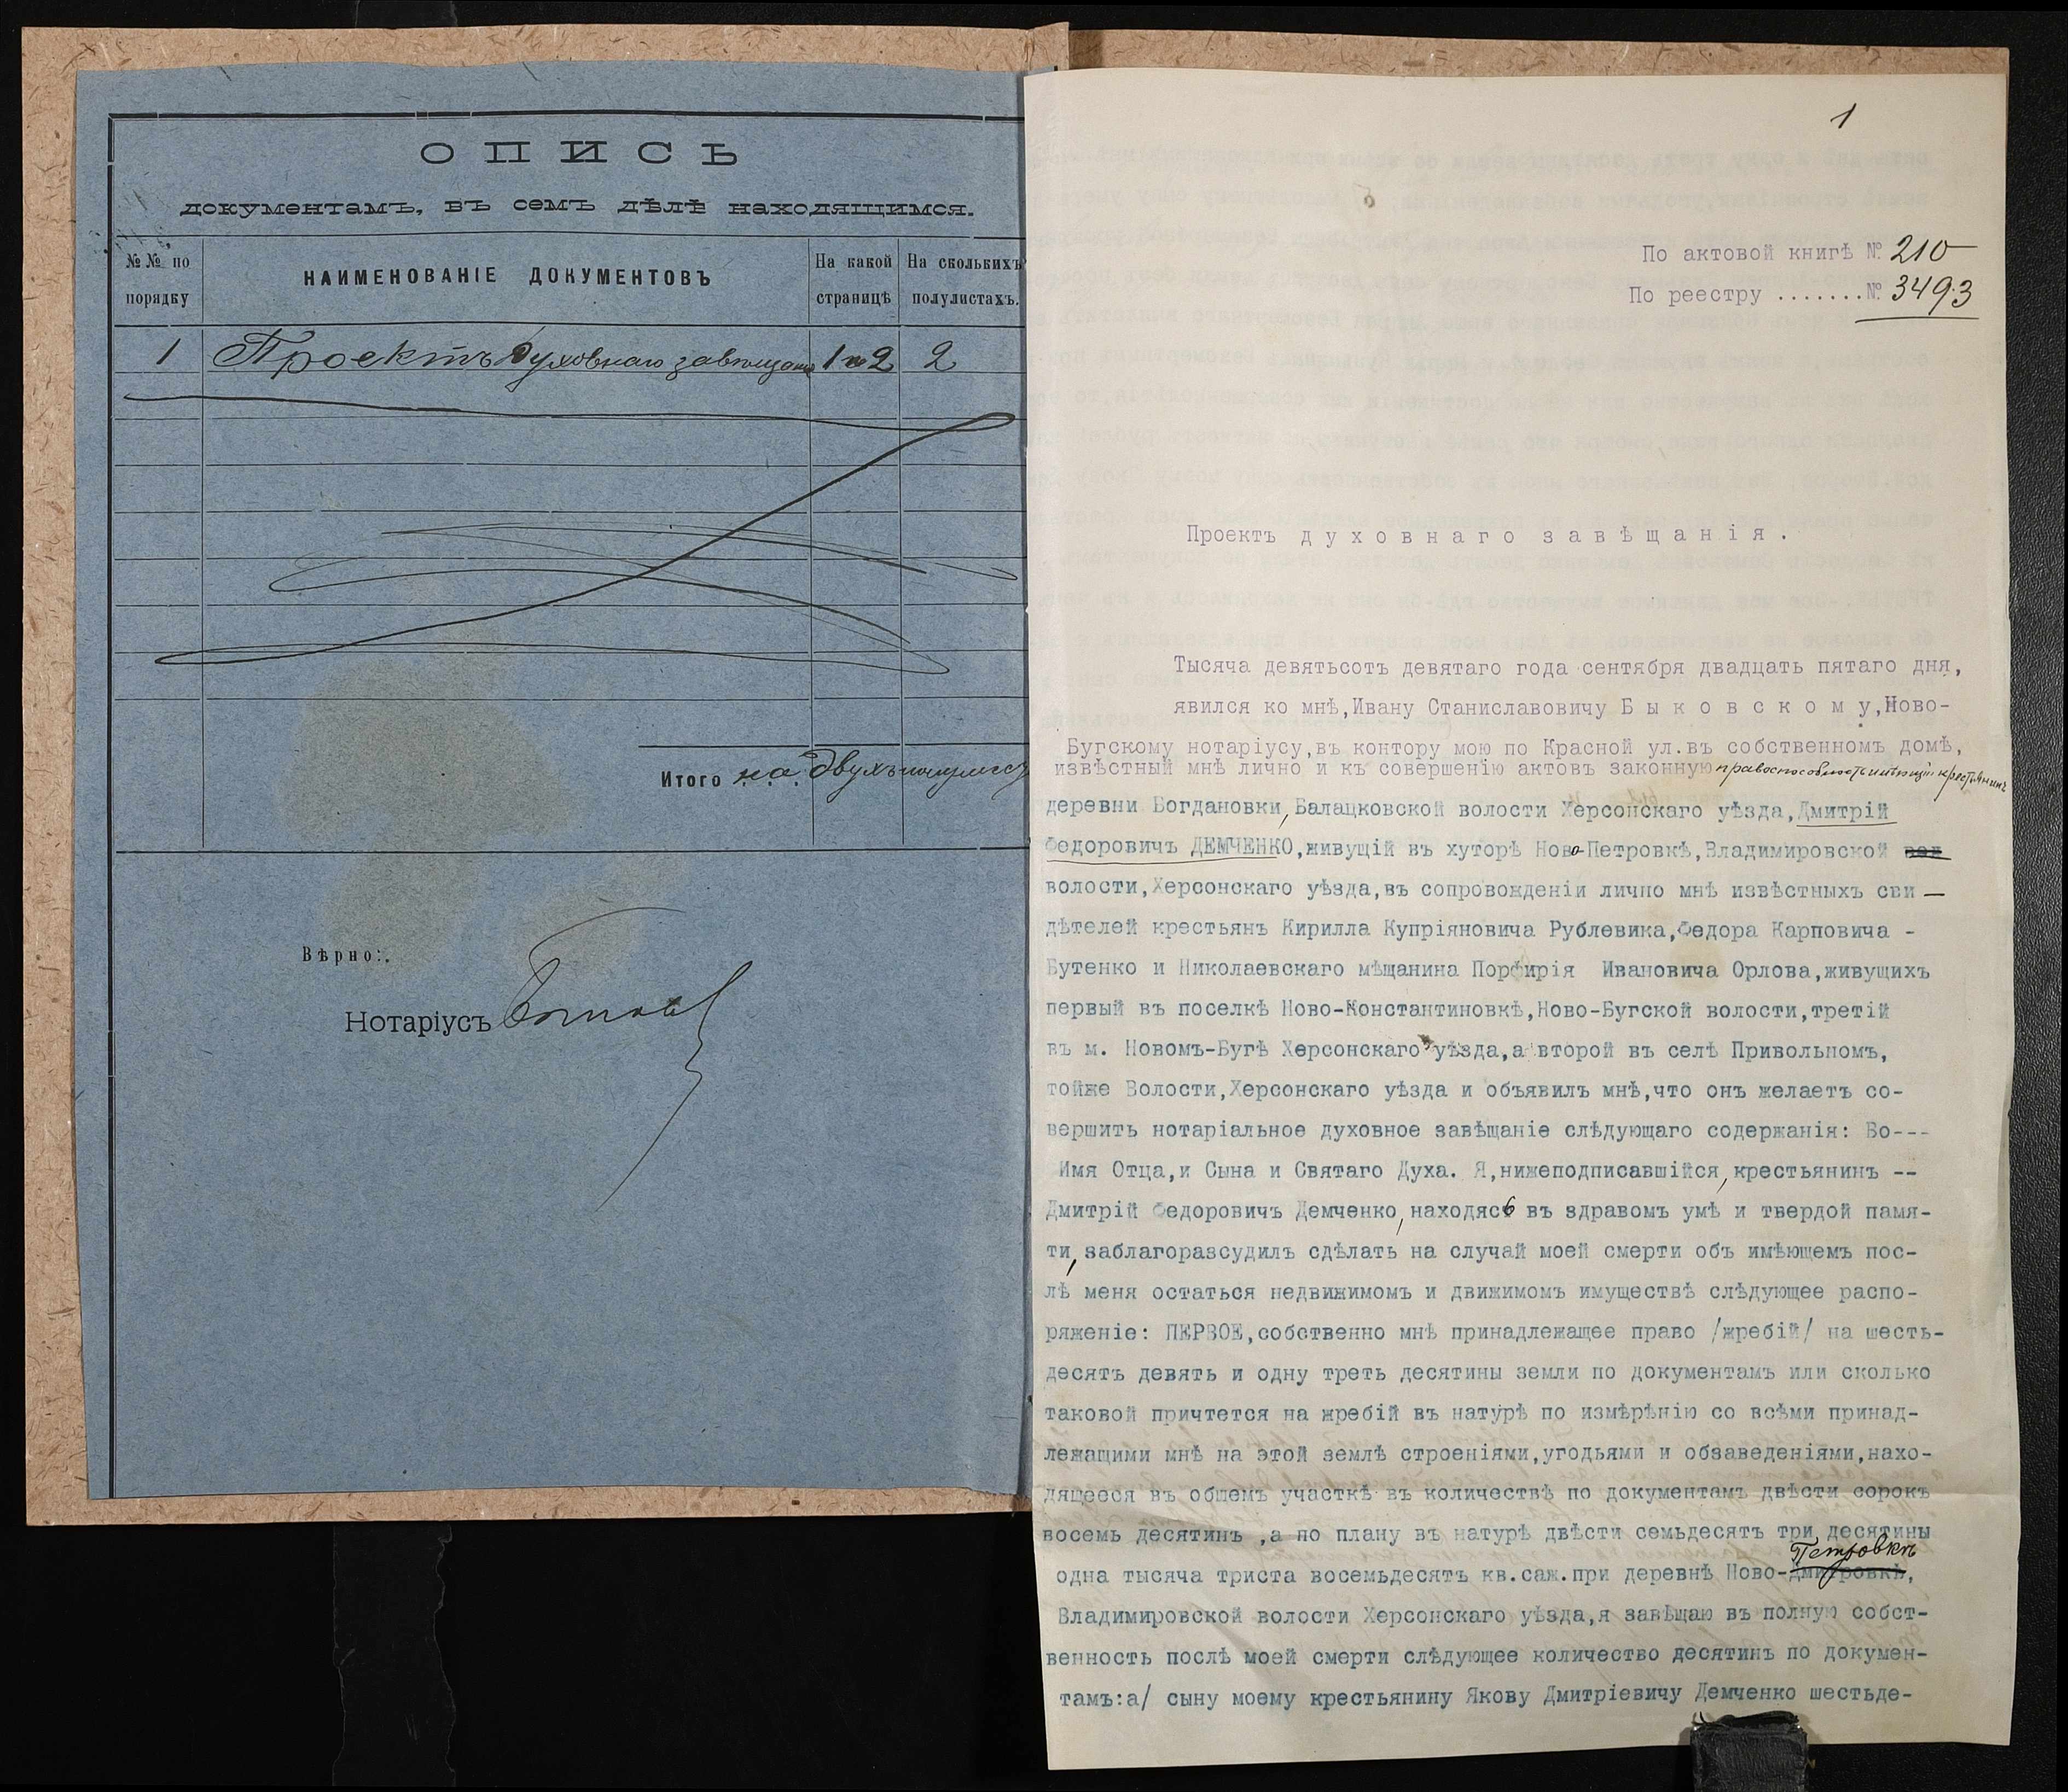 ОПИСЬ
документамъ, въ семъ дѣлѣ находящимся.
№№ по порядку
НАИМЕНОВАНІЕ ДОКУМЕНТОВЪ
На какой страницѣ
На сколькихъ полулистахъ.
1 Проектъ духовнаго завѣщанія 1 и 2 2
Итого на двухъ полулист
Вѣрно:
Нотаріусъ
1
По актовой книгѣ № 210
По реестру .......№ 3493
Проектъ духовнаго завѣщанія.
Тысяча девятьсотъ девятаго года сентября двадцать пятаго дня,
явился ко мнѣ,Ивану Станиславовичу Быковскому,Ново-
Бугскому нотаріусу,въ контору мою по Красной ул.въ собственномъ домѣ,
извѣстный мнѣ лично и къ совершенію актовъ законную правоспособность имѣющій крестьянинъ
деревни Богдановки,Балацковской волости Херсонскаго уѣзда,Дмитрій
Федоровичъ ДЕМЧЕНКО,живущій въ хуторѣ Ново-Петровкѣ,Владимировской вол
волости,Херсонскаго уѣзда,въ сопровожденіи лично мнѣ извѣстныхъ сви—
дѣтелей крестьянъ Кирилла Купріяновича Рублевика,Федора Карповича -
Бутенко и Николаевскаго мѣщанина Порфирія Ивановича Орлова,живущихъ
первый въ поселкѣ Ново-Константиновкѣ,Ново-Бугской волости,третій
въ м. Новомъ-Бугѣ Херсонскаго уѣзда,а второй въ селѣ Привольномъ,
тойже Волости,Херсонскаго уѣзда и объявилъ мнѣ,что онъ желаетъ со-
вершить нотаріальное духовное завѣщаніе слѣдующаго содержанія: Во---
Имя Отца,и Сына и Святаго Духа. Я,нижеподписавшійся,крестьянинъ --
Дмитрій Федоровичъ Демченко,находясь въ здравомъ умѣ и твердой памя-
ти,заблагоразсудилъ сдѣлать на случай моей смерти объ имѣющемъ пос-
лѣ меня остаться недвижимомъ и движимомъ имуществѣ слѣдующее распо-
ряженіе: ПЕРВОЕ,собственно мнѣ принадлежащее право /жребій/ на шесть-
десятъ девять и одну треть десятины земли по документамъ или сколько
таковой причтется на жребій въ натурѣ по измѣрѣнію со всѣми принад-
лежащими мнѣ на этой землѣ строеніями,угодьями и обзаведеніями,нахо-
дящееся въ общемъ участкѣ въ количествѣ по документамъ двѣсти сорокъ
восемь десятинъ ,а по плану въ натурѣ двѣсти семьдесятъ три десятины
Петровкѣ
одна тысяча триста восемьдесятъ кв.саж.при деревнѣ Ново-Дмитровкѣ,
Владимировской волости Херсонскаго уѣзда,я завѣщаю въ полную собст-
венность послѣ моей смерти слѣдующее количество десятинъ по докумен-
тамъ:а/ сыну моему крестьянину Якову Дмитріевичу Демченко шестьде-